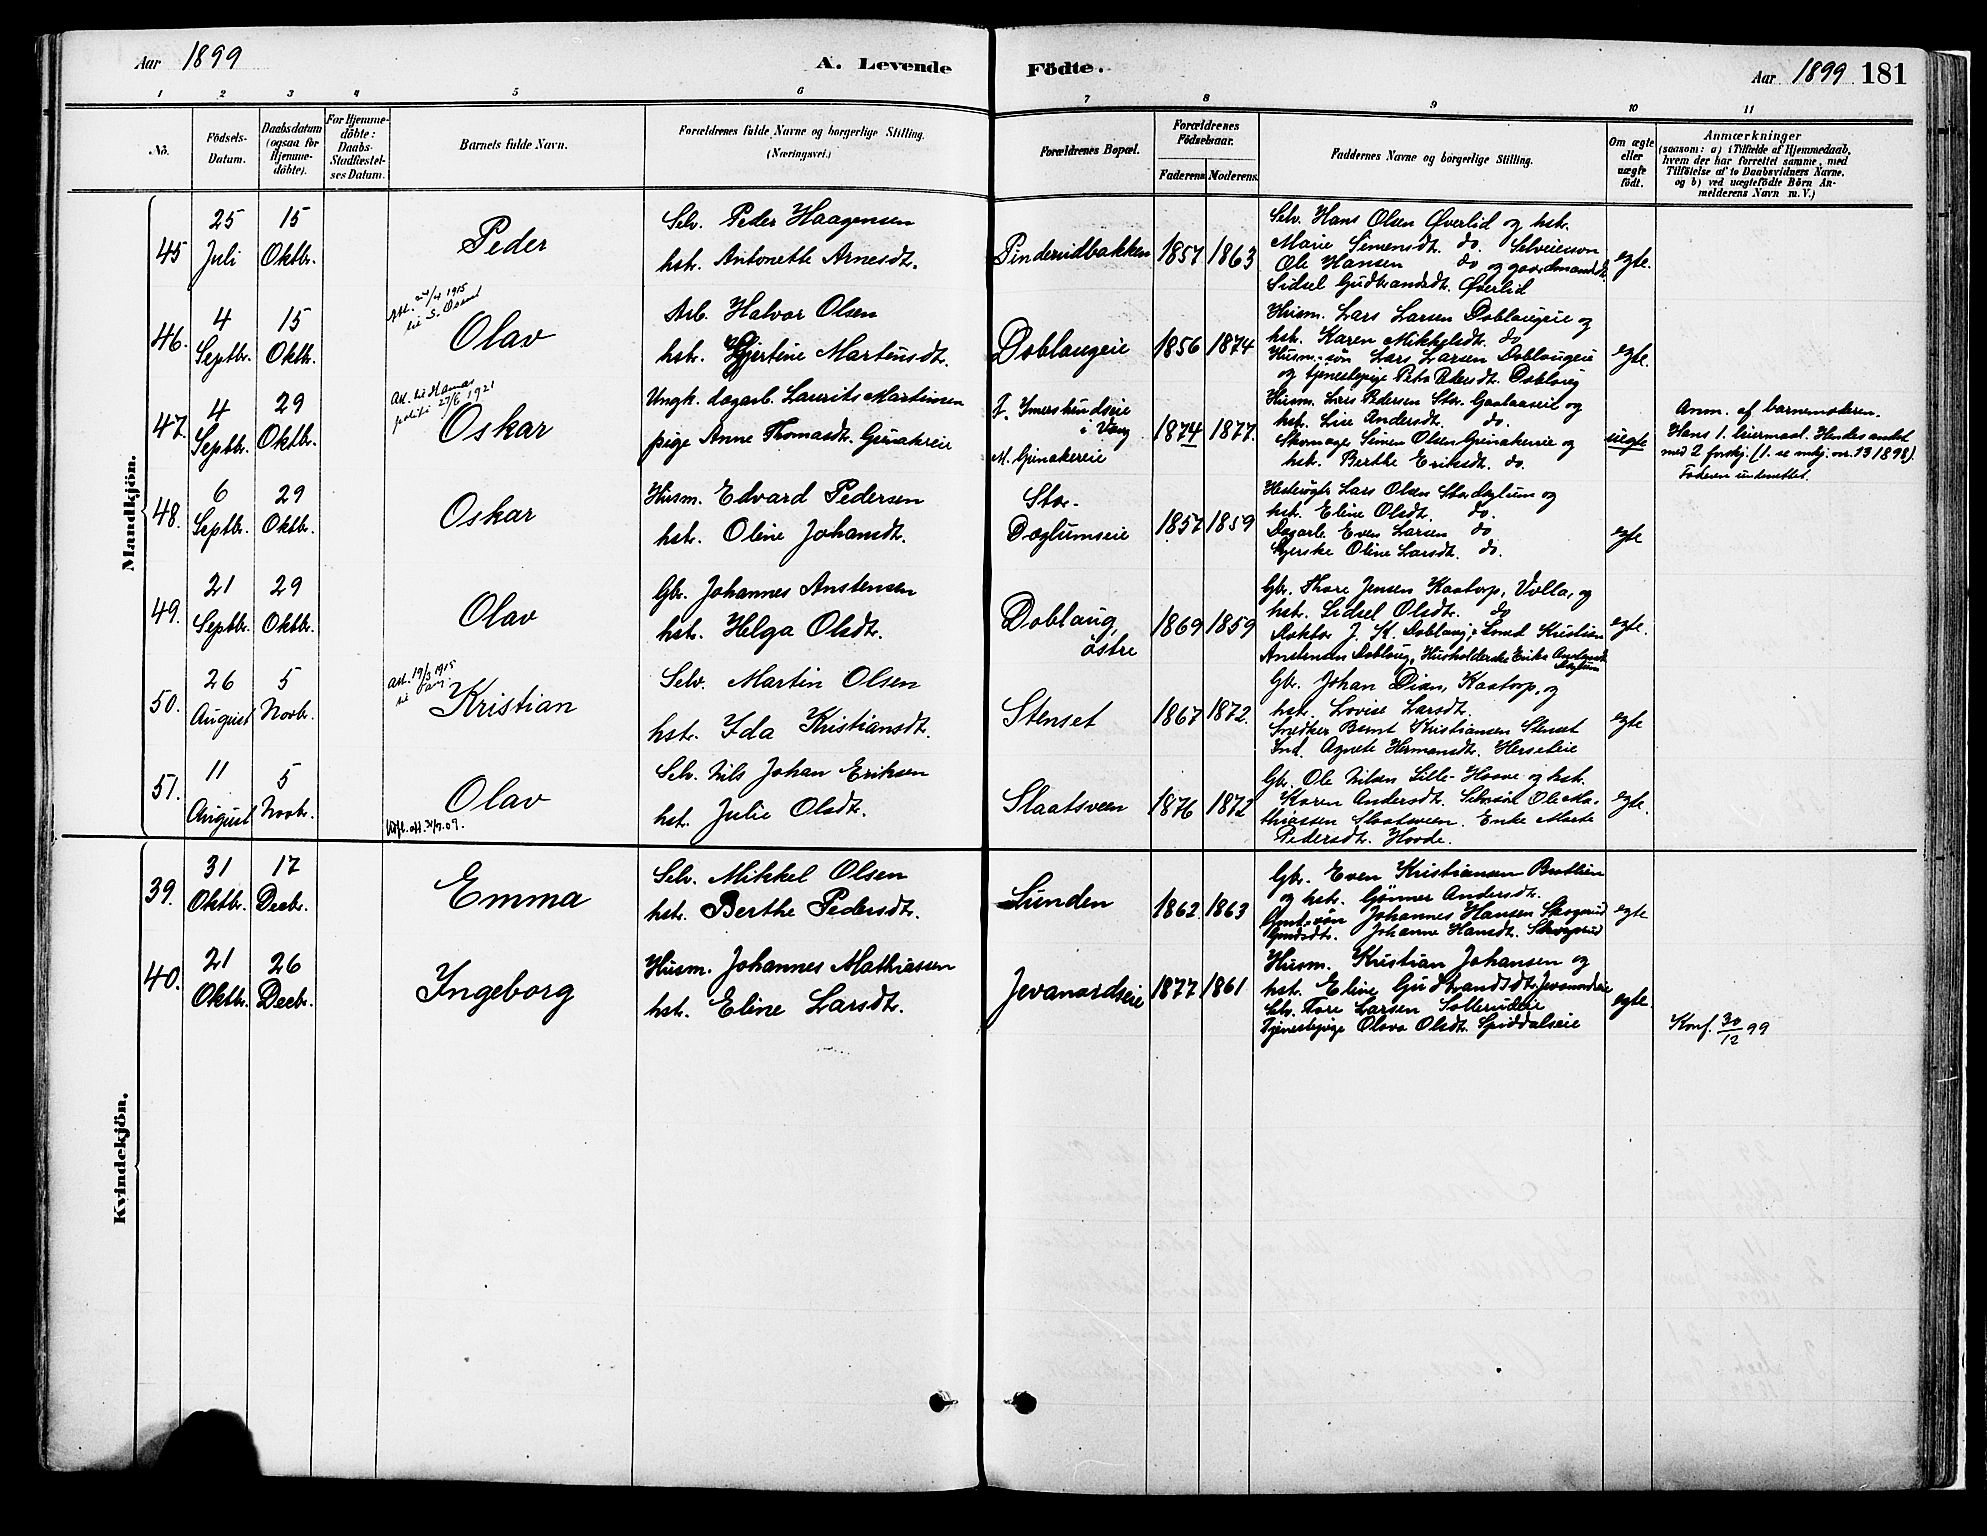 Aar 1899
A. Levende Födte.
Aar 1899 181
1 2 3 4 5 6 7 8 9 10 11
No.
Födsels-Datum.
Daabsdatum (ogsaa for Hjemme-döbte).
For Hjemme-döbte: Daabs-Stadfæstel-ses Datum.
Barnets fulde Navn.
Forældrenes fulde Navne og borgerlige Stilling.
(Næringsvei.)
Forældrenes Bopæl.
Forældrenes Födselsaar.
Faderens. Moderens.
Faddernes Navne og borgerlige Stilling.
Om ægte eller uægte födt.
Anmærkninger
(saasom: a) i Tilfælde af Hjemmedaab,
hvem der har forrettet samme, med
Tilföielse af to Daabsvidners Navne,
og b) ved uægtefödte Börn An-
melderens Navn m. V.)
Mandkjön.
45
25 Juli
15 Oktbr.
Peder
Selv. Peder Haagensen
hst. Antonette Arnesdt.
Pinderudbakken
1857 1863
Selv. Hans Olsen Øverlid og hst.
Marie Simensdt. do. Selveiersøn
Ole Hansen do og gaardmandsdt.
Sidsel Gudbrandsdt. Øverlid
egte.
46.
4 Septbr.
15 Oktbr.
Att. 24/4 1915
Olav
Arb. Halvor Olsen
hst. Hjertine Martinsdt.
Doblougeie
1856 1874
Husm. Lars Larsen Doblougeie og
hst. Karen Mikkelsdt. do
Husm.-søn Lars Larsen Doblougeie
og tjenestepige Petra Pedersdt. Dobloug
egte.
47.
4 Septbr.
29 Oktbr.
Att. til Hamar
politi 27/6 1921
Oskar
Ungk. dagarb. Laurits Martinsen
pige Anne Thomasdt. Grinakereie
F. Imerslundseie
i Vang
M. Grinakereie
1874 1877.
Husm. Lars Pedersen Stor. Gaalaaseie og
hst. Lise Andersdt. do.
Skomager Simen Olsen Grinakereie og
hst. Berthe Eriksdt. do.
uegte
Anm. af barnemoderen.
Hans 1. leiermaal. Hendes andet
med 2 forskj. (1. se mkj. nr. 13 1898).
Faderen underrettet.
48.
6 Septbr.
29 Oktbr.
Oskar
Husm. Edvard Pedersen
hst. Oline Johansdt.
Stor-
Dæglumseie
1857 1859
Lars Olsen Stordæglum og
hst. Eline Olsdt. do.
Dagarb. Even Larsen do
Syerske Oline Larsdt. do.
egte
49.
21 Septbr.
29 Oktbr.
Olav
Gbr. Johannes Anstensen
hst. Helga Olsdt.
Dobloug,
østre
1869 1859
Gbr. Thore Jensen Kaatorp, Volla, og
hst. Sidsel Olsdt. do
Doktor J. K. Dobloug, Kristian
Anstensen Dobloug, Husholderske Erika
egte.
50.
26 August
5 Novbr.
Att. 19/3 1915
til Vang.
Kristian
Selv. Martin Olsen
hst. Ida Kristiansdt.
Stenset
1867 1872.
Gbr. Johan Dien, Kaatorp, og
hst. Lovise Larsdt.
Snedker Bernt Kristiansen Stenset
Ind. Agnete Hermansdt. Herseteie
egte
51.
11 August
5 Novbr.
Olav
Selv. Nils Johan Eriksen
hst. Julie Olsdt.
Slaatsveen
1876 1872
Gbr. Ole Nilsen Lille-Hoove og hst.
Karen Andersdt. Selv.søn Ole Ma-
thiassen Slaatsveen. Enke Marte
Pedersdt. Hovde.
egte.
Kvindekjön.
39.
31 Oktbr.
17 Decbr.
Emma
Selv. Mikkel Olsen
hst. Berthe Pedersdt.
Lunden
1862. 1863
Gbr. Even Kristiansen Brotlien
og hst. Gønner Andersdt.
Johannes Hansen Skogrud
Johanne Hansdt. Skogrud
egte
40.
21 Oktbr.
26 Decbr.
Ingeborg
Husm. Johannes Mathiassen
hst. Eline Larsdt.
Jevanordseie
1877. 1861
Husm. Kristian Johansen og
hst. Eline Gudbrandsdt. Jevanordseie
Selv. Tore Larsen Sollerudeie
Tjenestepige Olava Olsdt. Spiddalseie
egte.
Konf. 30/12 99